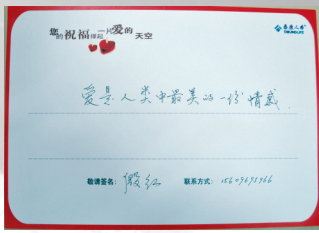 您的祝福撑起一片爱的天空
泰康人寿
TAIKANG LIFE
爱是人类中最美的一份情感
敬请签名: 段红
联系方式: 15609691966